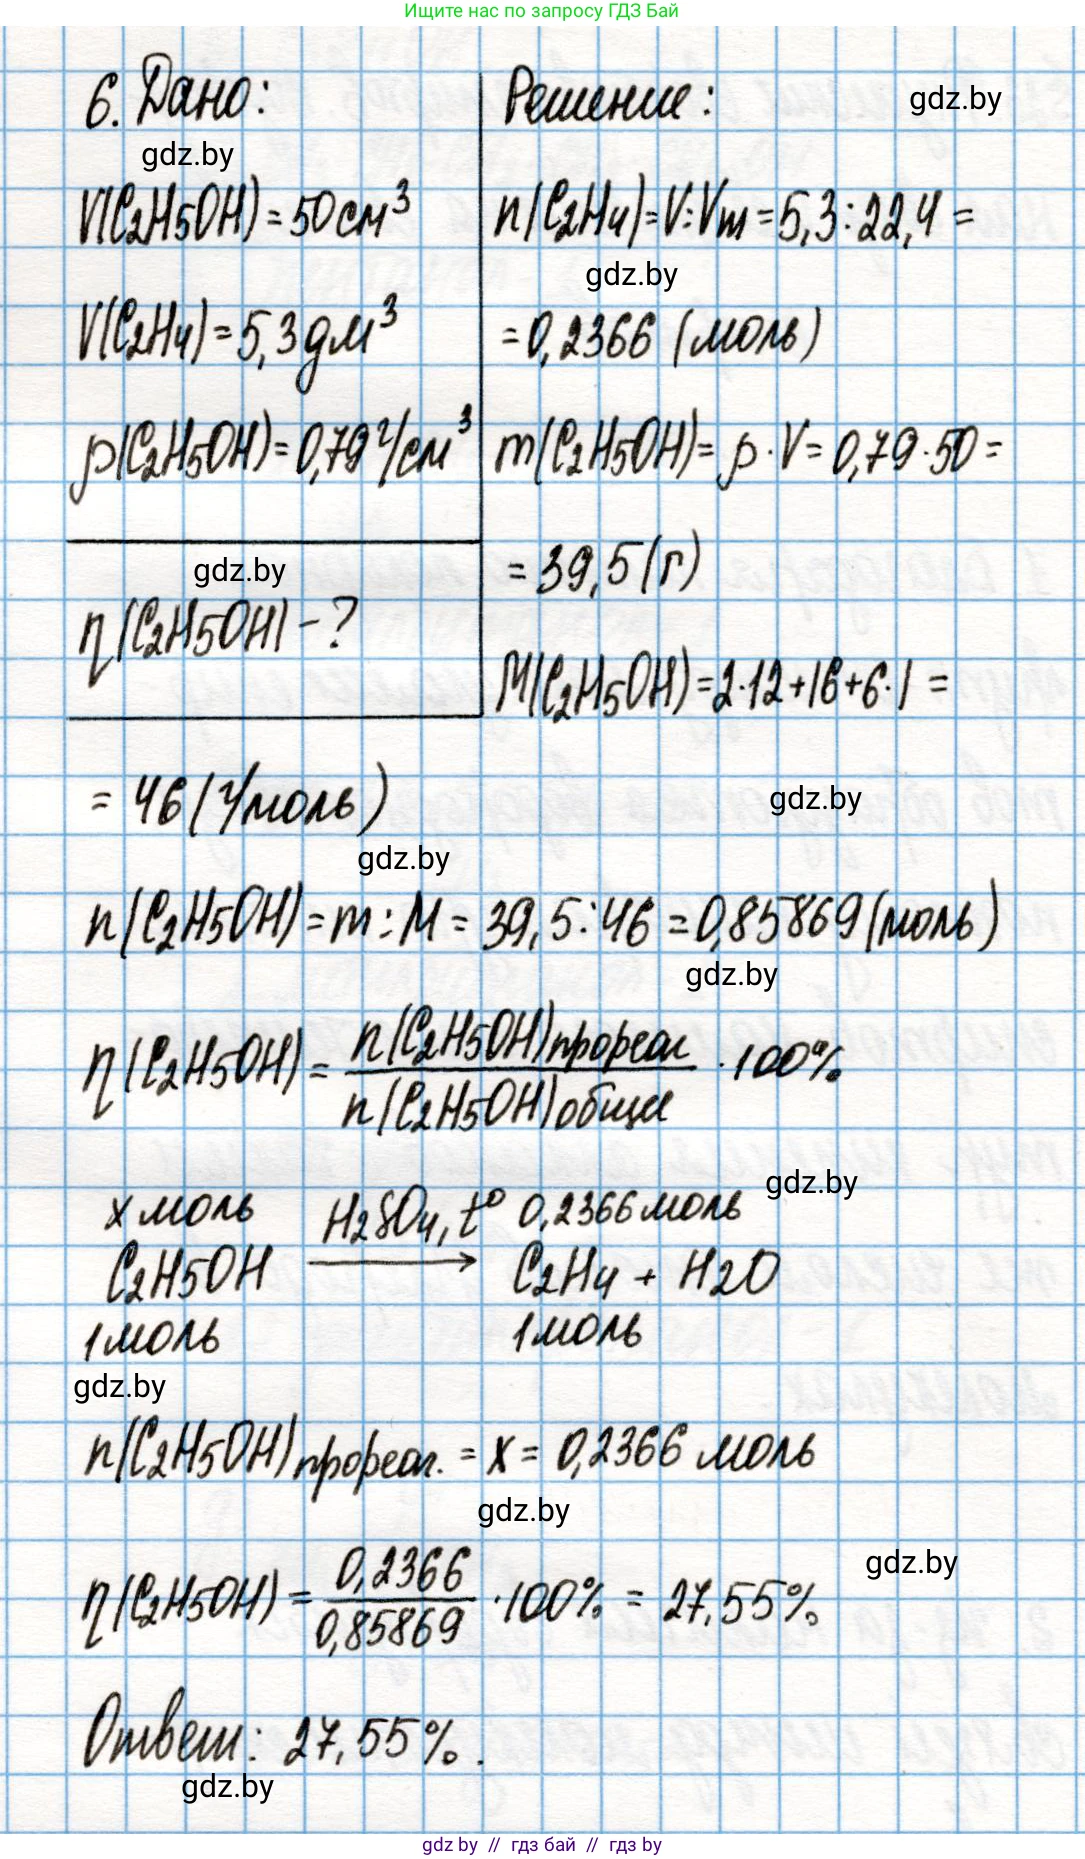 Ищите нас по запросу ГДЗ Бай
6. Дано:
gdz.by
V(C2H5OH) = 50 см³
V(C2H4) = 5,3 дм³
ρ(C2H5OH) = 0,79 г/см³
gdz.by
η(C2H5OH) - ?
Решение:
gdz.by
n(C2H4) = V : Vm = 5,3 : 22,4 =
gdz.by
= 0,2366 (моль)
m(C2H5OH) = ρ · V = 0,79 · 50 =
= 39,5 (г)
M(C2H5OH) = 2·12+16+6·1 =
= 46 (г/моль)
gdz.by
gdz.by
n(C2H5OH) = m : M = 39,5 : 46 = 0,85869 (моль)
gdz.by
η(C2H5OH) = n(C2H5OH)прореаг / n(C2H5OH)общее · 100%
gdz.by
x моль H2SO4, t° 0,2366 моль
C2H5OH → C2H4 + H2O
1 моль 1 моль
gdz.by
n(C2H5OH)прореаг. = x = 0,2366 моль
gdz.by
gdz.by
η(C2H5OH) = 0,2366 / 0,85869 · 100% = 27,55%
Ответ: 27,55%.
gdz.by
gdz by // гдз бай // гдз by